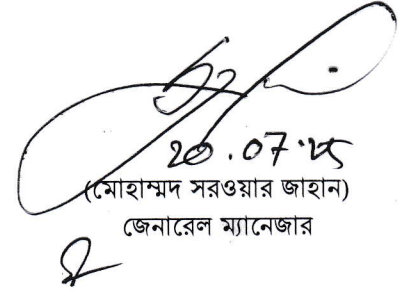 20.07.25
(মোহাম্মদ সরওয়ার জাহান)
জেনারেল ম্যানেজার